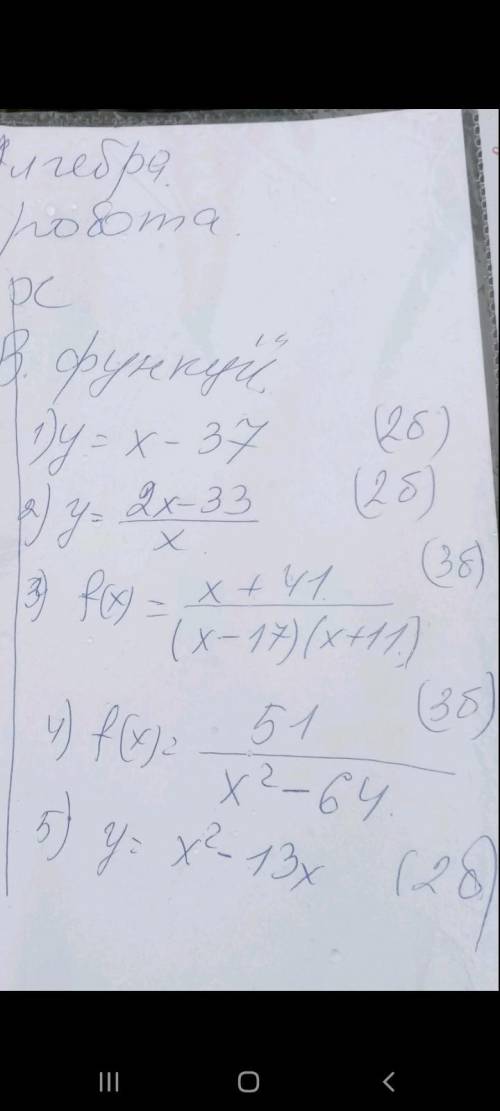 Алгебра.
робота.
В. функцій.
1) y = x - 37 (2б)
2) y = \frac{2x-33}{x} (2б)
3) f(x) = \frac{x+41}{(x-17)(x+11)} (3б)
4) f(x) = \frac{51}{x^2-64} (3б)
5) y = x^2 - 13x (2б)